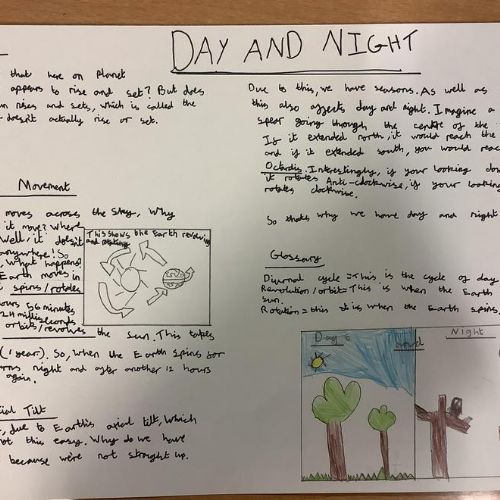 DAY AND NIGHT
that here on Planet
appears to rise and set? But does
rises and sets, which is called the
doesn't actually rise or set.
Movement
moves across the stay, Why
it move? Where
Well, it doesn't
anywhere! So
what happens?
Earth moves in
spins/rotates
hours 56 minutes
orbits/revolves the sun. This takes
(1 year). So, when the Earth spins for
night and after another 12 hours
again.
Tilt
, due to Earth's axial tilt, which
not this easy. Why do we have
because we're not straight up.
This shows the Earth revolving
and rotating
Due to this, we have seasons. As well as
this also affects day and night. Imagine a
spear going through the centre of the
If it extended north, it would reach the
and if it extended south, you would reach
Octantis. Interestingly, if your looking down
it rotates Anti-clockwise, if your looking
rotates clockwise.
So thats why we have day and night
Glossary
Diurnal cycle = This is the cycle of day
Revolution/orbit = This is when the Earth
sun.
Rotation = this it is when the Earth spins.
Day
Night